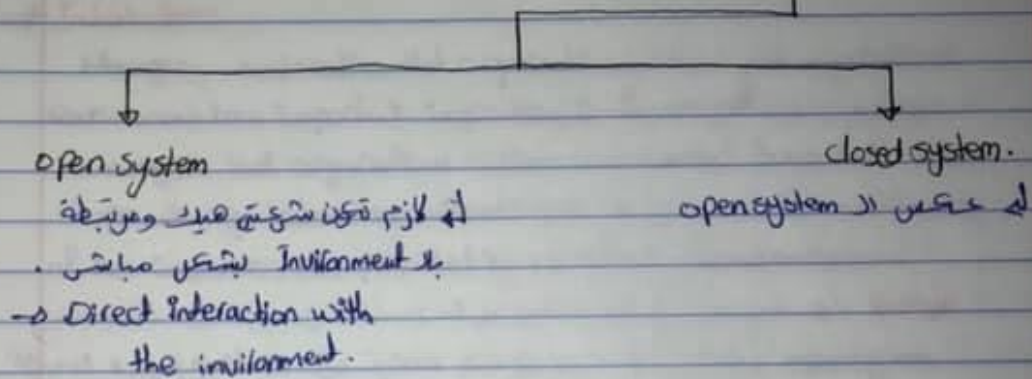 open system
لازم تكون شرعية هيك ومرتبطة
بلا Invilonment بشكل مباشر .
→ Direct interaction with
the invilonment.
closed system.
عكس الـ open system